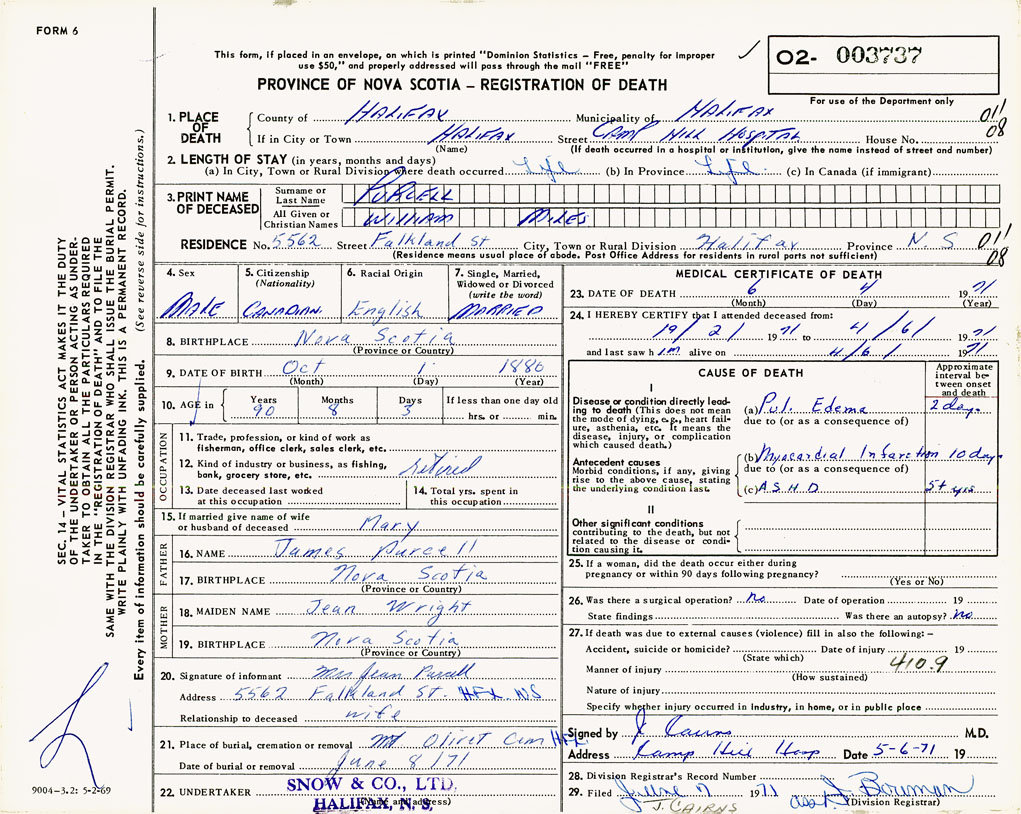 FORM 6
This form, if placed in an envelope, on which is printed "Dominion Statistics – Free, penalty for improper
use $50," and properly addressed will pass through the mail "FREE"
O2- 003737
PROVINCE OF NOVA SCOTIA – REGISTRATION OF DEATH
For use of the Department only
1. PLACE OF DEATH
County of HALIFAX Municipality of HALIFAX 011
If in City or Town HALIFAX Street CAMP HILL HOSPITAL House No. 08
(Name) (If death occurred in a hospital or institution, give the name instead of street and number)
2. LENGTH OF STAY (in years, months and days)
(a) In City, Town or Rural Division where death occurred Life (b) In Province Life (c) In Canada (if immigrant)
3. PRINT NAME OF DECEASED
Surname or Last Name PURCELL
All Given or Christian Names WILLIAM MILES
RESIDENCE No. 5562 Street Falkland St City, Town or Rural Division Halifax Province N. S 011
(Residence means usual place of abode. Post Office Address for residents in rural parts not sufficient) 08
4. Sex
MALE
5. Citizenship
(Nationality)
CANADIAN
6. Racial Origin
English
7. Single, Married,
Widowed or Divorced
(write the word)
MARRIED
8. BIRTHPLACE Nova Scotia
(Province or Country)
9. DATE OF BIRTH Oct 1 1880
(Month) (Day) (Year)
10. AGE in Years Months Days If less than one day old
90 8 3 hrs. or min.
OCCUPATION
11. Trade, profession, or kind of work as
fisherman, office clerk, sales clerk, etc.
12. Kind of industry or business, as fishing,
bank, grocery store, etc. retired
13. Date deceased last worked
at this occupation
14. Total yrs. spent in
this occupation
15. If married give name of wife
or husband of deceased Mary
FATHER
16. NAME James Purcell
17. BIRTHPLACE Nova Scotia
(Province or Country)
MOTHER
18. MAIDEN NAME Jean Wright
19. BIRTHPLACE Nova Scotia
(Province or Country)
20. Signature of informant Mrs Jean Purcell
Address 5562 Falkland St. HFX N.S
Relationship to deceased wife
21. Place of burial, cremation or removal Mt Olivet Cem HFX
Date of burial or removal June 8/71
22. UNDERTAKER SNOW & CO., LTD.
HALIFAX, N. S.
(Name and address)
MEDICAL CERTIFICATE OF DEATH
23. DATE OF DEATH 6 4 1971
(Month) (Day) (Year)
24. I HEREBY CERTIFY that I attended deceased from:
19/2/ 1971 to 4/6/ 1971
and last saw him alive on 4/6/ 1971
CAUSE OF DEATH
Approximate
interval be-
tween onset
and death
I
Disease or condition directly lead-
ing to death (This does not mean
the mode of dying, e.g., heart fail-
ure, asthenia, etc. It means the
disease, injury, or complication
which caused death.)
(a) Pul. Edema 2 days
due to (or as a consequence of)
Antecedent causes
Morbid conditions, if any, giving
rise to the above cause, stating
the underlying condition last.
(b) Myocardial Infarction 10 days
due to (or as a consequence of)
(c) A S H D 5+ yrs
II
Other significant conditions
contributing to the death, but not
related to the disease or condi-
tion causing it.
25. If a woman, did the death occur either during
pregnancy or within 90 days following pregnancy?
(Yes or No)
26. Was there a surgical operation? No Date of operation 19
State findings Was there an autopsy? no
27. If death was due to external causes (violence) fill in also the following: –
Accident, suicide or homicide? Date of injury 19
(State which)
Manner of injury 410.9
(How sustained)
Nature of injury
Specify whether injury occurred in industry, in home, or in public place
Signed by J. Cairns M.D.
Address Camp Hill Hosp Date 5-6-71 19
28. Division Registrar's Record Number
29. Filed June 7 1971 J Bowman
J. CAIRNS (Division Registrar)
SEC. 14 – VITAL STATISTICS ACT MAKES IT THE DUTY
OF THE UNDERTAKER OR PERSON ACTING AS UNDER-
TAKER TO OBTAIN ALL THE PARTICULARS REQUIRED
IN THE "REGISTRATION OF DEATH" AND TO FILE THE
SAME WITH THE DIVISION REGISTRAR WHO SHALL ISSUE THE BURIAL PERMIT.
WRITE PLAINLY WITH UNFADING INK. THIS IS A PERMANENT RECORD.
Every item of information should be carefully supplied. (See reverse side for instructions.)
9004-3.2: 5-2-69